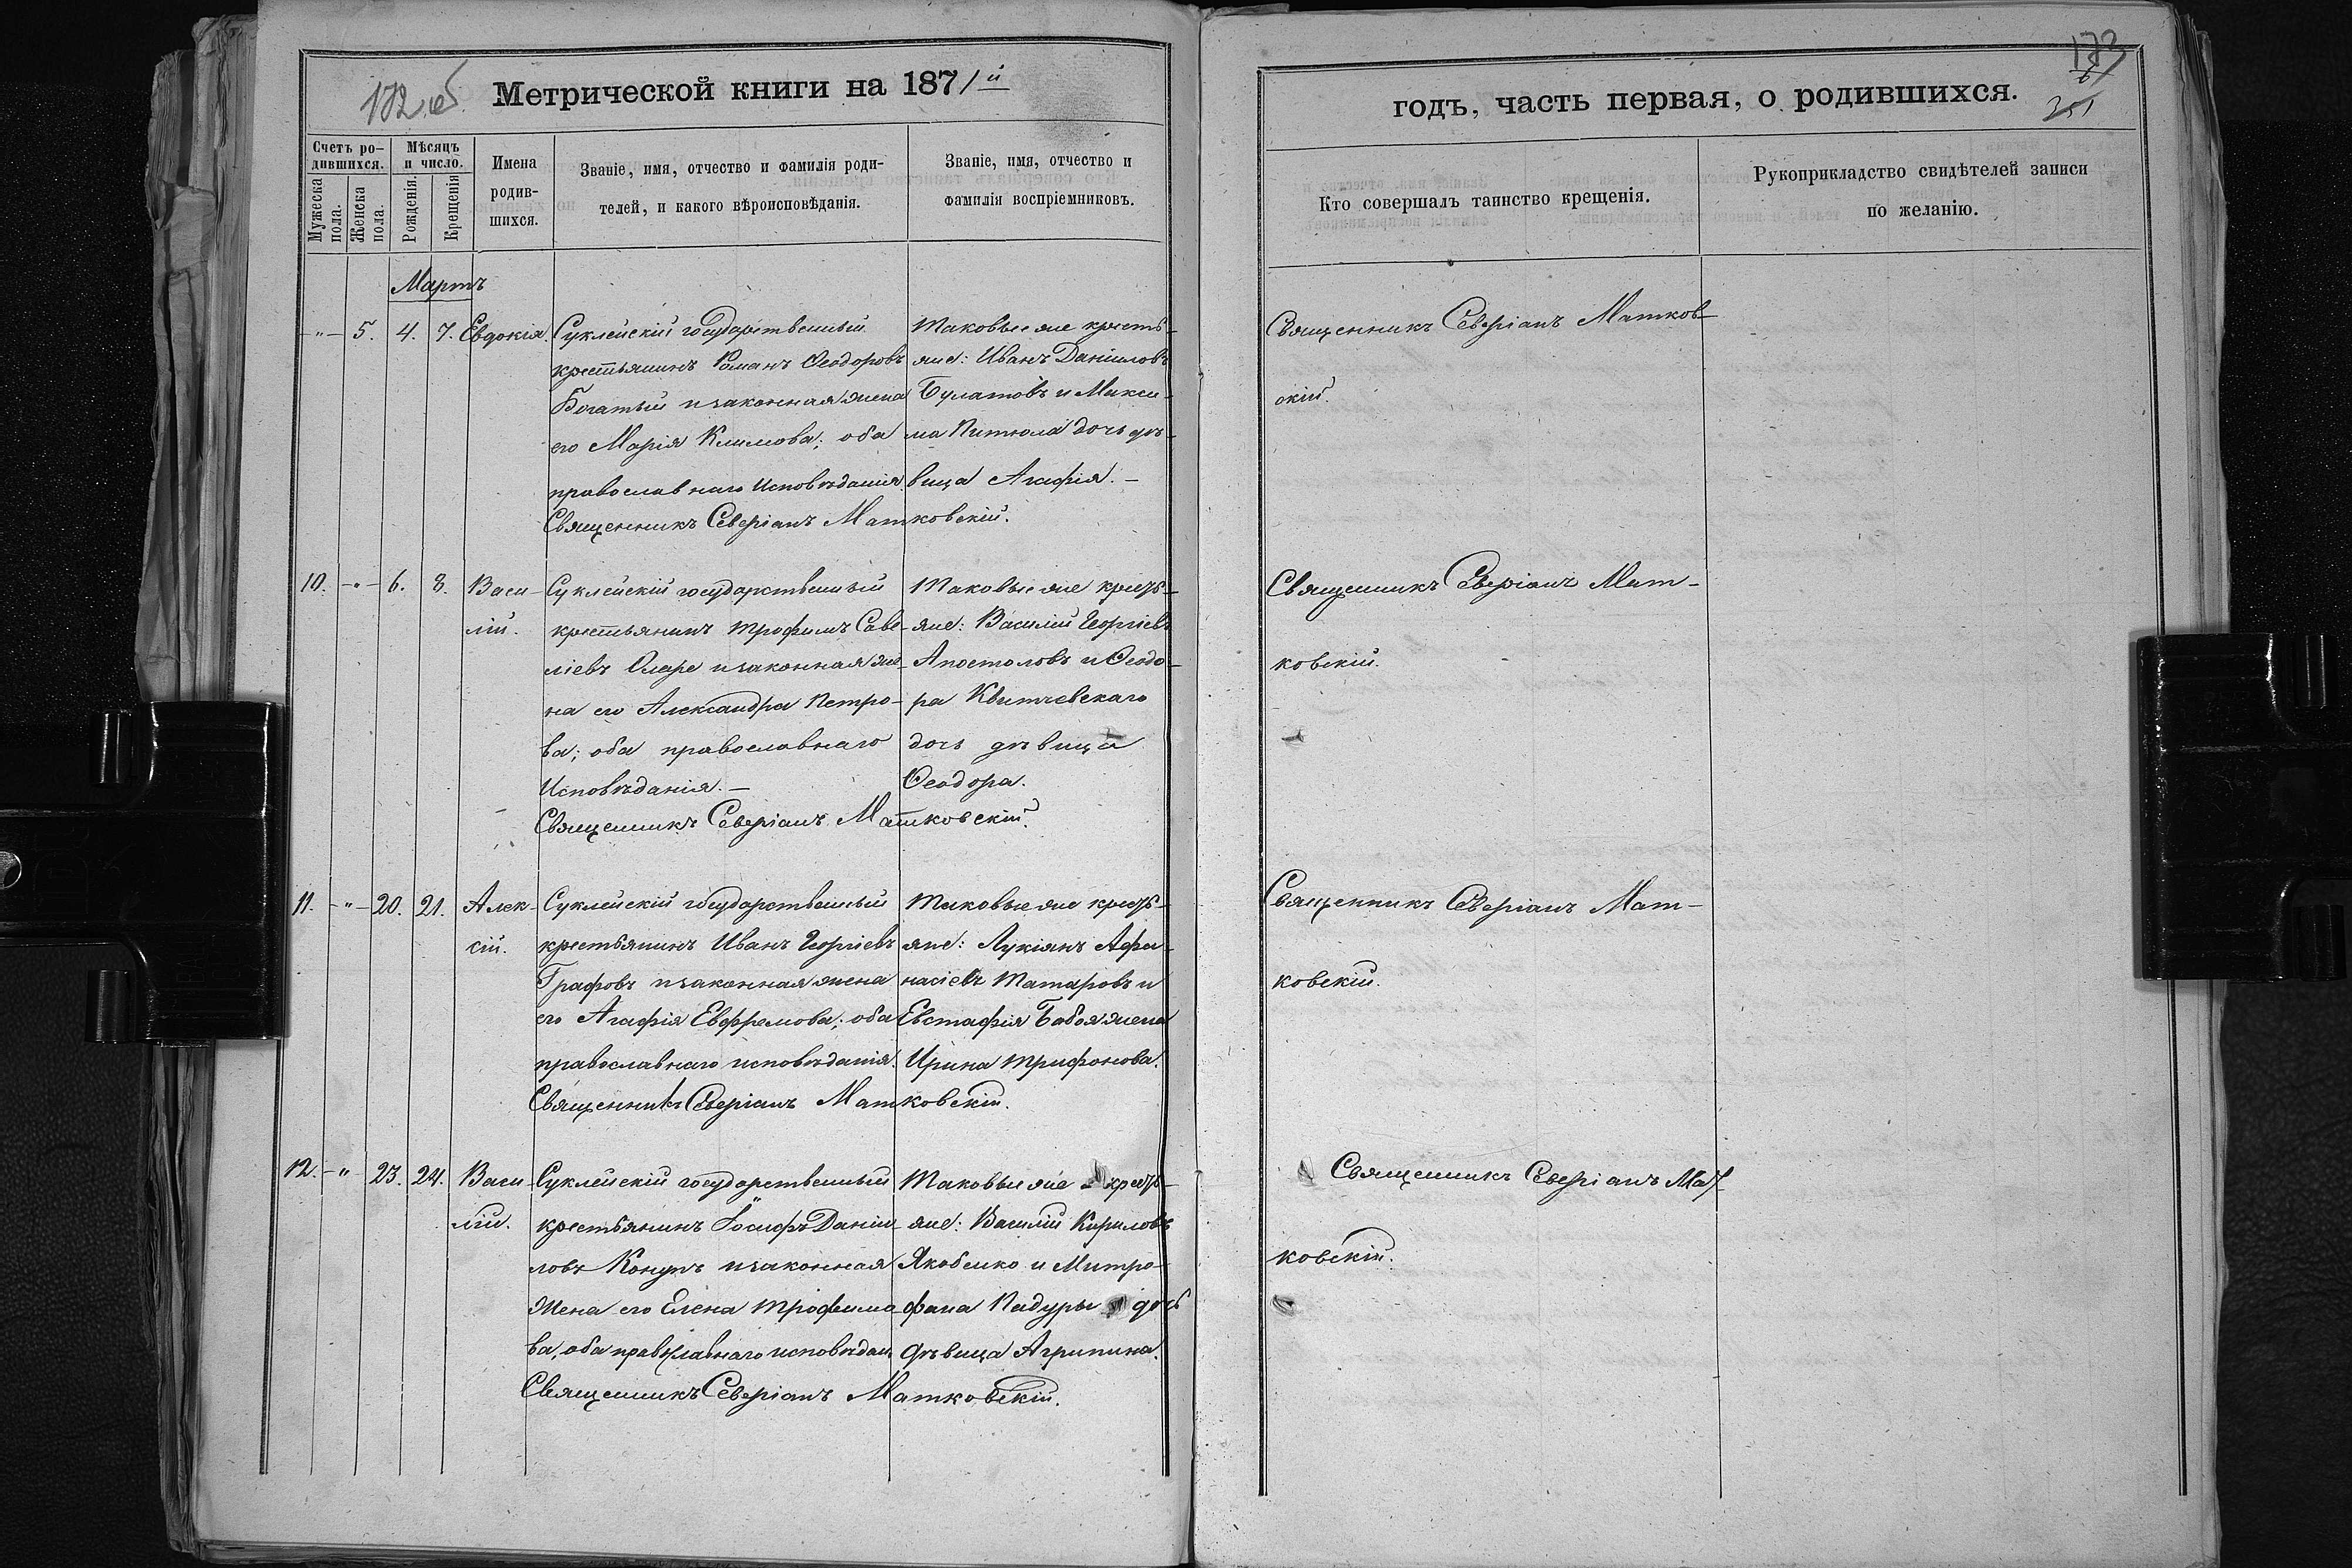 172 об
Метрической книги на 1871й
Счетъ ро-
дившихся.
Мѣсяцъ
и число.
Мужеска
пола.
Женска
пола.
Рожденія.
Крещенія
Имена
родив-
шихся.
Званіе, имя, отчество и фамилія роди-
телей, и какого вѣроисповѣданія.
Званіе, имя, отчество и
фамилія воспріемниковъ.
Мартъ
-"- 5. 4. 7. Евдокія.
Суклейскій государственный
крестьянинъ Романъ Ѳеодоровъ
Богатый и законная жена
его Марія Климова; оба
православнаго Исповѣданія.
Священникъ Северіанъ Матковскій.
Таковые же кресть-
яне: Иванъ Даніиловъ
Булатовъ и Макси-
ма Питюла дочь дѣ-
вица Агафія.-
10. -"- 6. 8. Васи-
лій.
Суклейскій государственный
крестьянинъ Трофимъ Саве-
ліевъ Оларе и законная же-
на его Александра Петро-
ва; оба православнаго
Исповѣданія.-
Священникъ Северіанъ Матковскій.
Таковые же кресть-
яне: Василій Георгіевъ
Апостоловъ и Ѳеодо-
ра Квитчевскаго
дочь дѣвица
Ѳеодора.
11. -"- 20. 21. Алек-
сій.
Суклейскій государственный
крестьянинъ Иванъ Георгіевъ
Графовъ и законная жена
его Агафія Евфремова; оба
православнаго исповѣданія.
Священникъ Северіанъ Матковскій.
Таковые же кресть-
яне: Лукіянъ Афа-
насіевъ Татаровъ и
Евстафія Бабоя жена
Ирина Трифонова.
12. -"- 23. 24. Васи-
лій.
Суклейскій государственный
крестьянинъ Іосифъ Даніи-
ловъ Конупъ и законная
жена его Елена Трофимо-
ва, оба православнаго исповѣдан.
Священникъ Северіанъ Матковскій.
Таковые же кресть-
яне: Василій Кириловъ
Якобенко и Митро-
фана Падуры дочь
дѣвица Агрипина.
173
351
годъ, часть первая, о родившихся.
Кто совершалъ таинство крещенія.
Рукоприкладство свидѣтелей записи
по желанію.
Священникъ Северіанъ Матков-
скій.
Священникъ Северіанъ Мат-
ковскій.
Священникъ Северіанъ Мат-
ковскій.
Священникъ Северіанъ Мат-
ковскій.